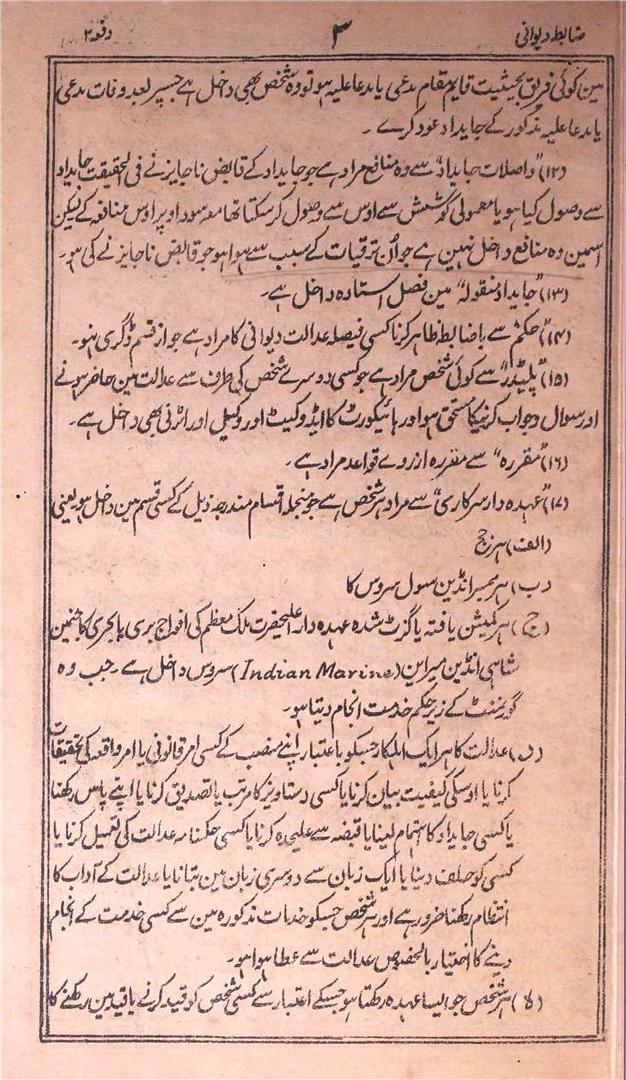 ضابطہ دیوانی ۳ دفعہ ۲
مین کوئی فریق بحیثیت قایم مقام مدعی یا مدعا علیہ ہو تو وہ شخص بھی داخل ہے جسپر بعد وفات مدعی
یا مدعا علیہ مذکور کے جایداد عود کرے ۔
(۱۲) "واصلات جایداد" سے وہ منافع مراد ہے جو جایداد کے قابض ناجایز نے فی الحقیقت جایداد
سے وصول کیا ہو یا معمولی کوشش سے اوس سے وصول کر سکتا تھا معہ سود اوپر اوس منافعہ کے لیکن
اسمین وہ منافع داخل نہین ہے جو اُن ترقیات کے سبب سے ہوا ہو جو قابض ناجایز نے کی ہو۔
(۱۳) "جایداد منقولہ" مین فصل استادہ داخل ہے۔
(۱۴) "حکم" سے باضابطہ ظاہر کرنا کسی فیصلہ عدالت دیوانی کا مراد ہے جو از قسم ڈگری نہو۔
(۱۵) "پلیڈر" سے کوئی شخص مراد ہے جو کسی دوسرے شخص کی طرف سے عدالت مین حاضر ہونے
اور سوال وجواب کرنیکا مستحق ہو اور ہائیکورٹ کا ایڈوکیٹ اور وکیل اور اٹرنی بھی داخل ہے۔
(۱۶) "مقررہ" سے مقررہ ازروے قواعد مراد ہے۔
(۱۷) "عہدہ دار سرکاری" سے مراد ہر شخص ہے جو منجملہ اقسام مندرجہ ذیل کے کسی قسم مین داخل ہو یعنی
(الف) ہر جج
(ب) ہر ممبر انڈین سول سروس کا
(ج) ہر کمیشن یافتہ یا گزٹ شدہ عہدہ دار اعلیحضرت ملک معظم کی افواج بری یا بحری کا جنمین
شاہی انڈین میراین (Indian Marine) سروس داخل ہے ۔ جب وہ
گورنمنٹ کے زیر حکم خدمت انجام دیتا ہو۔
(د) عدالت کا ہر ایک اہلکار جسکو باعتبار اپنے منصب کے کسی امر قانونی یا امر واقعہ کی تحقیقات
کرنا یا اوسکی کیفیت بیان کرنا یا کسی دستاویز کا مرتب یا تصدیق کرنا یا اپنے پاس رکھنا
یا کسی جایداد کا اہتمام لینا یا قبضہ سے علیحدہ کرنا یا کسی حکمنامہ عدالت کی تعمیل کرنا یا
کسی کو حلف دینا یا ایک زبان سے دوسری زبان مین بتانا یا عدالت کے آداب کا
انتظام رکھنا ضرور ہے اور ہر شخص جسکو خدمات مذکورہ مین سے کسی خدمت کے انجام
دینے کا اختیار بالخصوص عدالت سے عطا ہوا ہو۔
(ہ) ہر شخص جو ایسا عہدہ رکھتا ہو جسکے اعتبار سے کسی شخص کو قید کرنے یا قید مین رکھنے کا